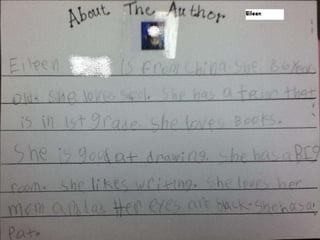 About The Author
Eileen
Eileen is from China. She is 6 year
old. She loves She has a that
is in 1st grade. She loves Books.
She is good at drawing. She has a BIG
room. She likes writing. She loves her
mom and Her eyes are black. she has a